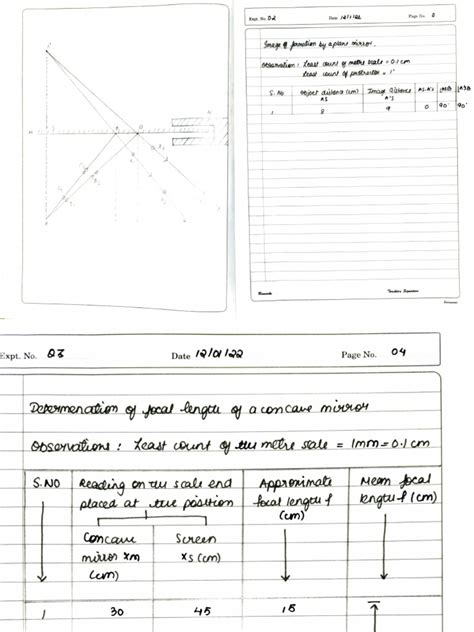 Expt. No. 02
Date 12/1/22
Page No.
Image of formation by a plane mirror.
Observation: Least count of metre scale = 0.1 cm
Least count of protractor = 1°
S. No Object distance (cm) Image distance
AS A'S
1 8 9 0 90° 90°
Remarks
Teacher's Signature
Expt. No. 03
Date 12/01/22
Page No. 04
Determenation of focal length of a concave mirror
Observations : Least count of the metre scale = 1mm = 0.1 cm
S.NO Reading on the scale end placed at the position
Approximate focal length f (cm)
Mean focal length f (cm)
Concave mirror xm (cm)
Screen xs (cm)
1 30 45 15